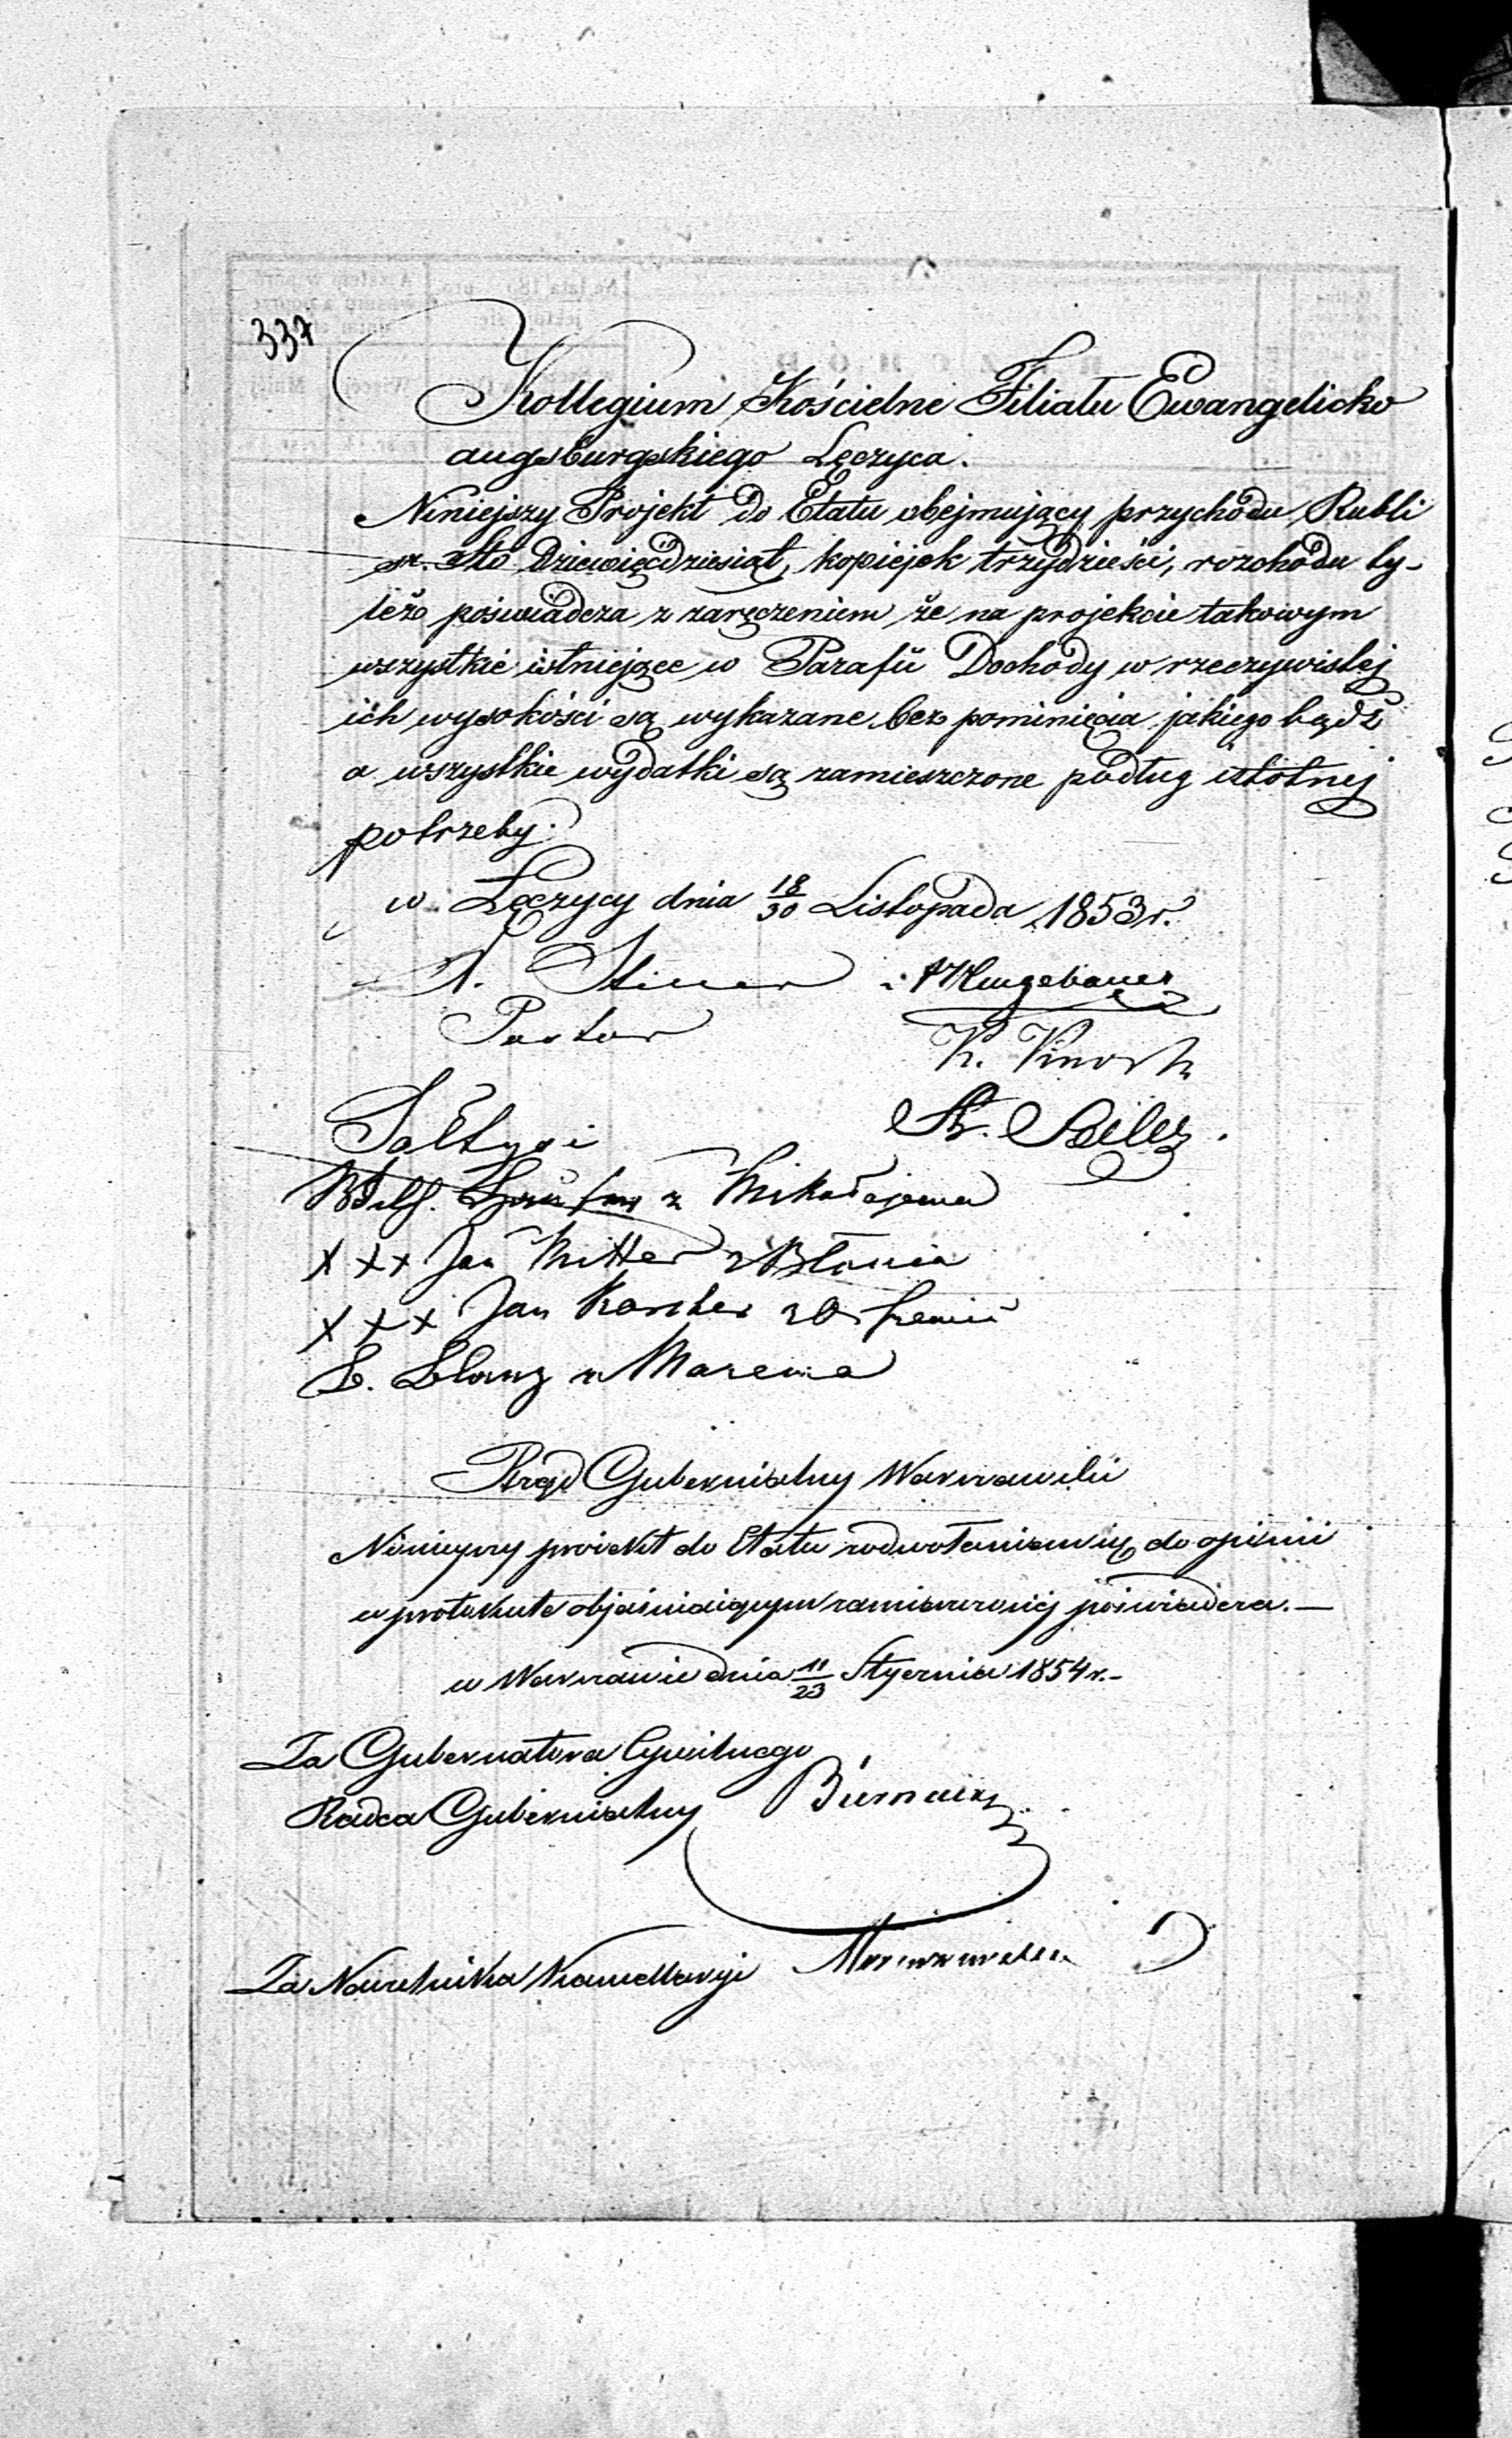 337
Kollegium Kościelne Filiału Ewangelicko
augsburgskiego Łęczyca.
Niniejszy Projekt do Etatu obejmujący przychodu Rubli
sr. Sto Dziewięćdziesiąt, kopiejek trzydzieści, rozchodu ty-
leż poświadcza z zaręczeniem że na projekcie takowym
wszystkie istniejące w Parafii Dochody w rzeczywistej
ich wysokości są wykazane bez pominięcia jakiego bądź
a wszystkie wydatki są zamieszczone podług istotnej
potrzeby.
w Łęczycy dnia 18/30 Listopada 1853 r.
Pastor
K. Kinosh
Sołtysi
Wilh. z Mikołajewa
xxx Jan Mitter z Błonia
xxx Jan Karcher z
z Mazewa
Rząd Gubernialny Warszawski
Niniejszy proiekt do Etatu z odwołaniem się do opinii
w protokule objaśniaiącym zamieszczonéj poświadcza.—
w Warszawie dnia 11/23 Stycznia 1854 r.-
Za Gubernatora Cywilnego
Radca Gubernialny
Za Naczelnika Kancellaryi